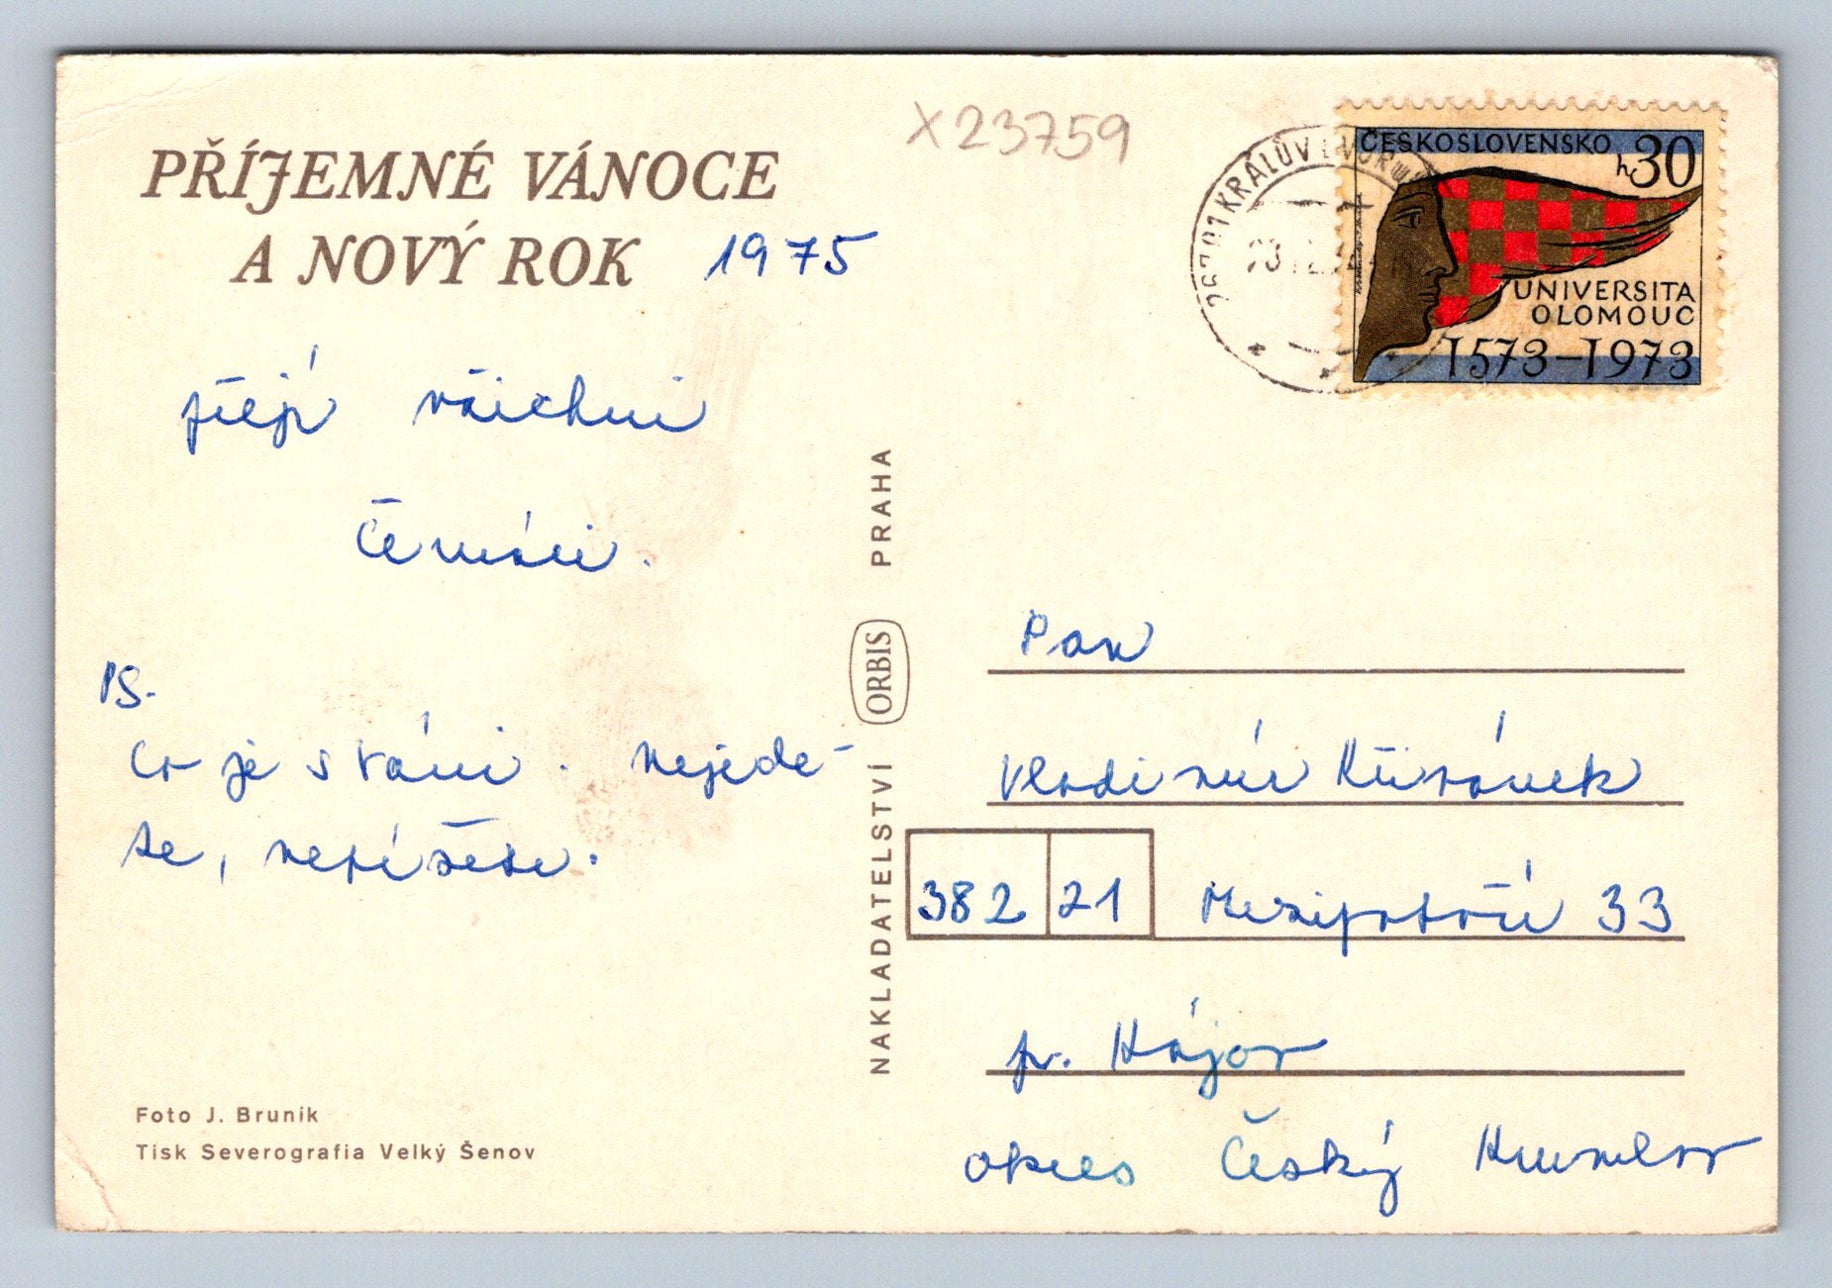 PŘÍJEMNÉ VÁNOCE
A NOVÝ ROK 1975
přejí všichni
Čermáci.
PS.
Co je s Vámi. Nejede-
te, nepíšete.
Foto J. Bruník
Tisk Severografia Velký Šenov
NAKLADATELSTVÍ ORBIS PRAHA
X23759
267 01 KRÁLŮV DVŮR
ČESKOSLOVENSKO
h30
UNIVERSITA
OLOMOUC
1573–1973
Pan
Vladimír Křivánek
382 21 Mezipotočí 33
p. Hájov
okres Český Krumlov